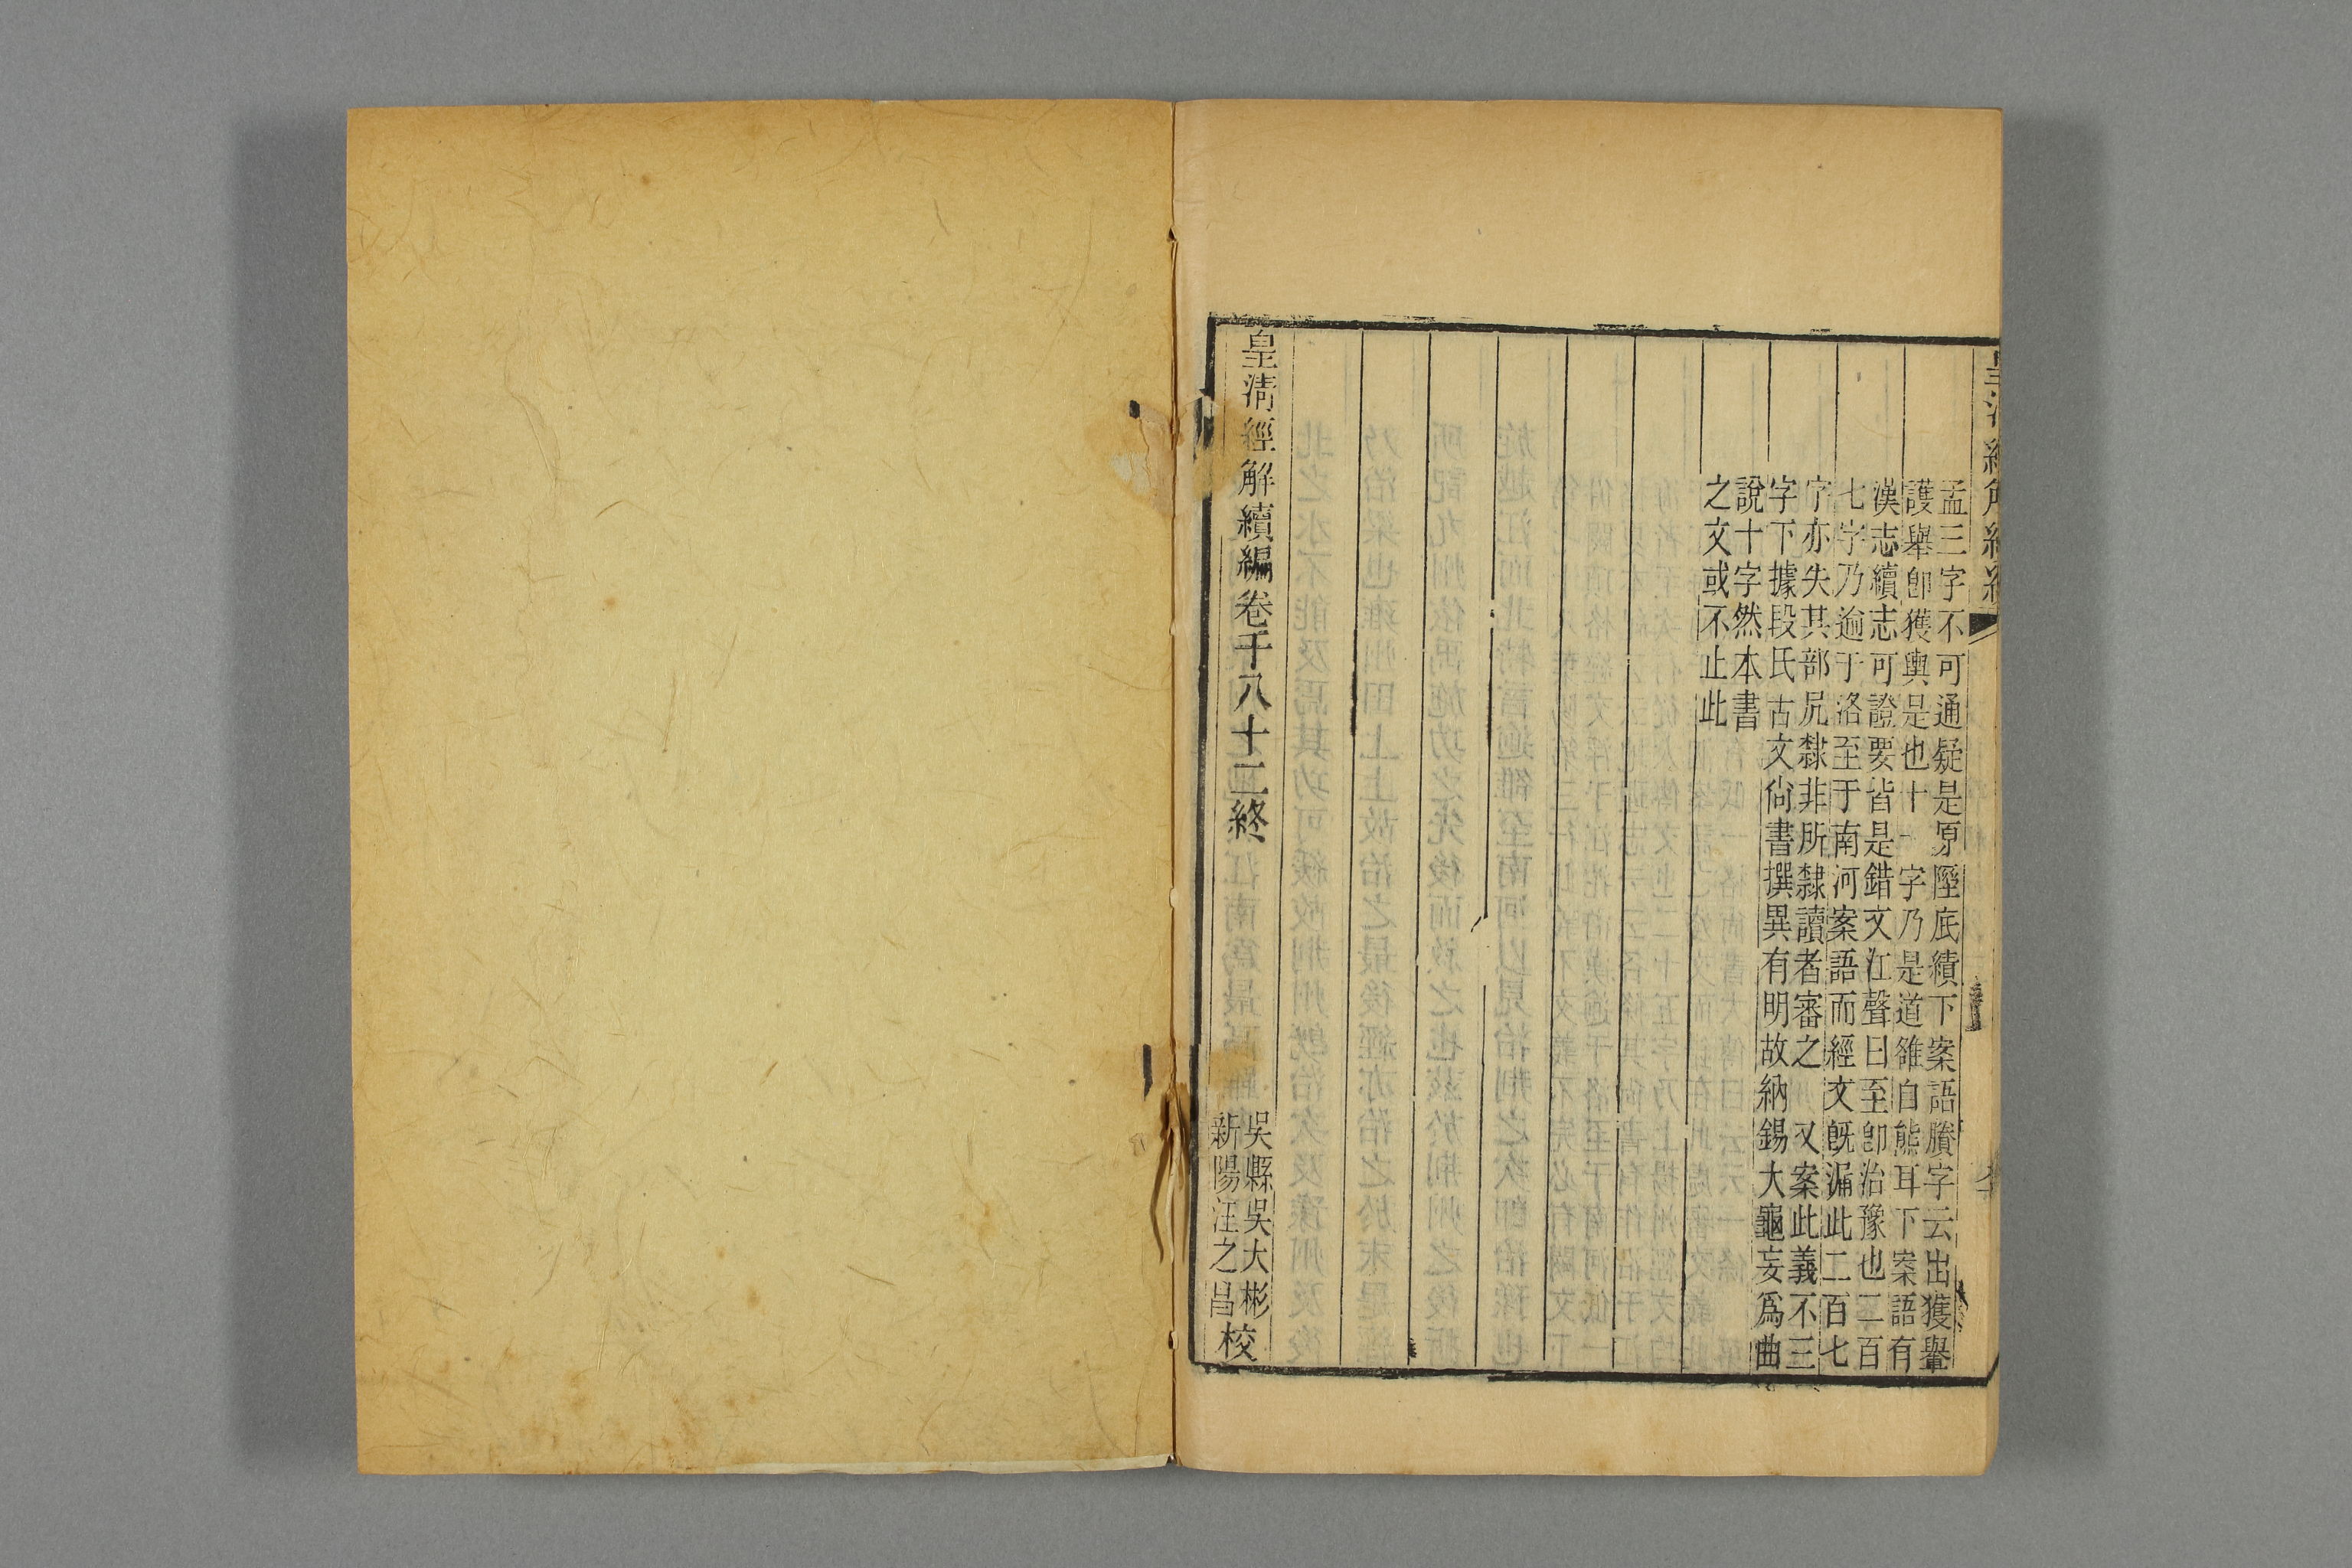 孟三字不可通疑是原隰底績下案語賸字云出獲轝
護舉卽獲輿是也十一字乃是道雒自熊耳下案語有
漢志續志可證要皆是錯文江聲曰至卽治豫也二百
七字乃逾于洛至于南河案語而經文旣漏此二百七
字亦失其部凥隸非所隸讀者審之　又案此義不三
字下據段氏古文尙書撰異有明故納錫大龜妄爲曲
說十字然本書
之文或不止此
皇淸經解續編卷千八十二終
吳縣吳大彬
新陽汪之昌
校